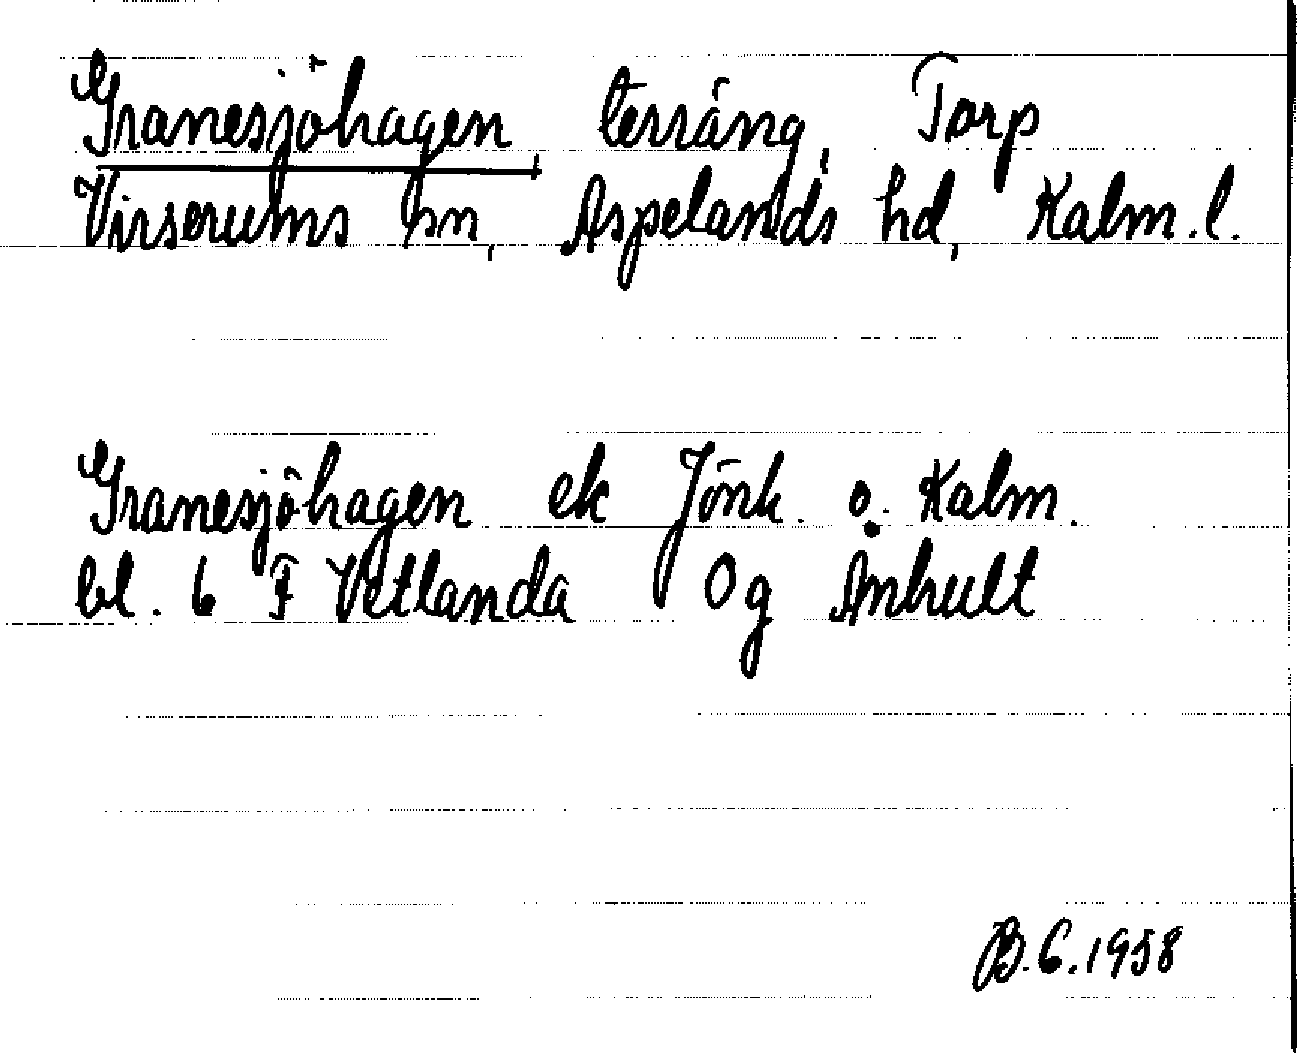 Granesjöhagen, terräng, Torp
Virserums sn, Aspelands hd, Kalm. l.
Granesjöhagen ek Jönk. o. Kalm.
bl. 6 F Vetlanda 0g Åmhult
B.C. 1958